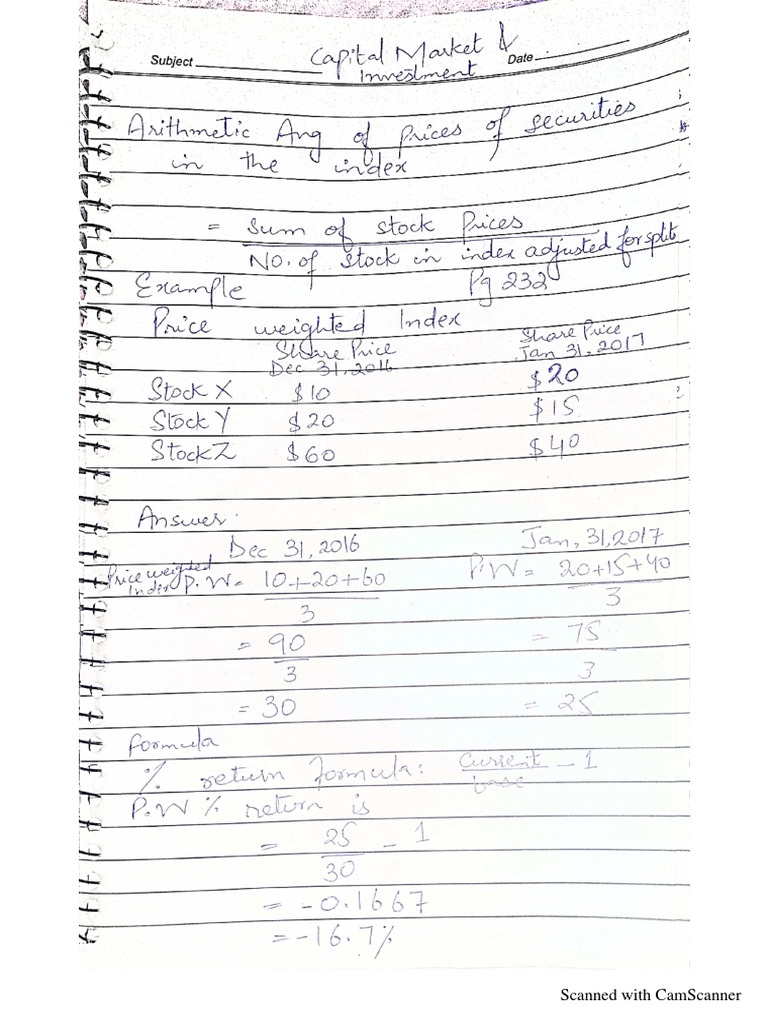 Subject Capital Market & Date
Investment
Arithmetic Avg of prices of securities
in the index
= Sum of stock Prices
NO. of Stock in index adjusted for split
Example Pg 232
Price weighted Index
Share Price Share Price
Dec 31, 2016 Jan 31, 2017
Stock X $10 $20
Stock Y $20 $15
Stock Z $60 $40
Answer.
Dec 31, 2016 Jan, 31, 2017
Price weighted Index P.W = 10+20+60 P.W = 20+15+40
3 3
= 90 = 75
3 3
= 30 = 25
formula
% return formula: Current - 1
base
P.W % return is
= 25 - 1
30
= -0.1667
= -16.7%
Scanned with CamScanner